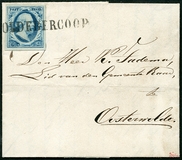 OLDEBERCOOP
Den Heer K. Tadema
Lid van den Gemeente Raad
Oosterwolde